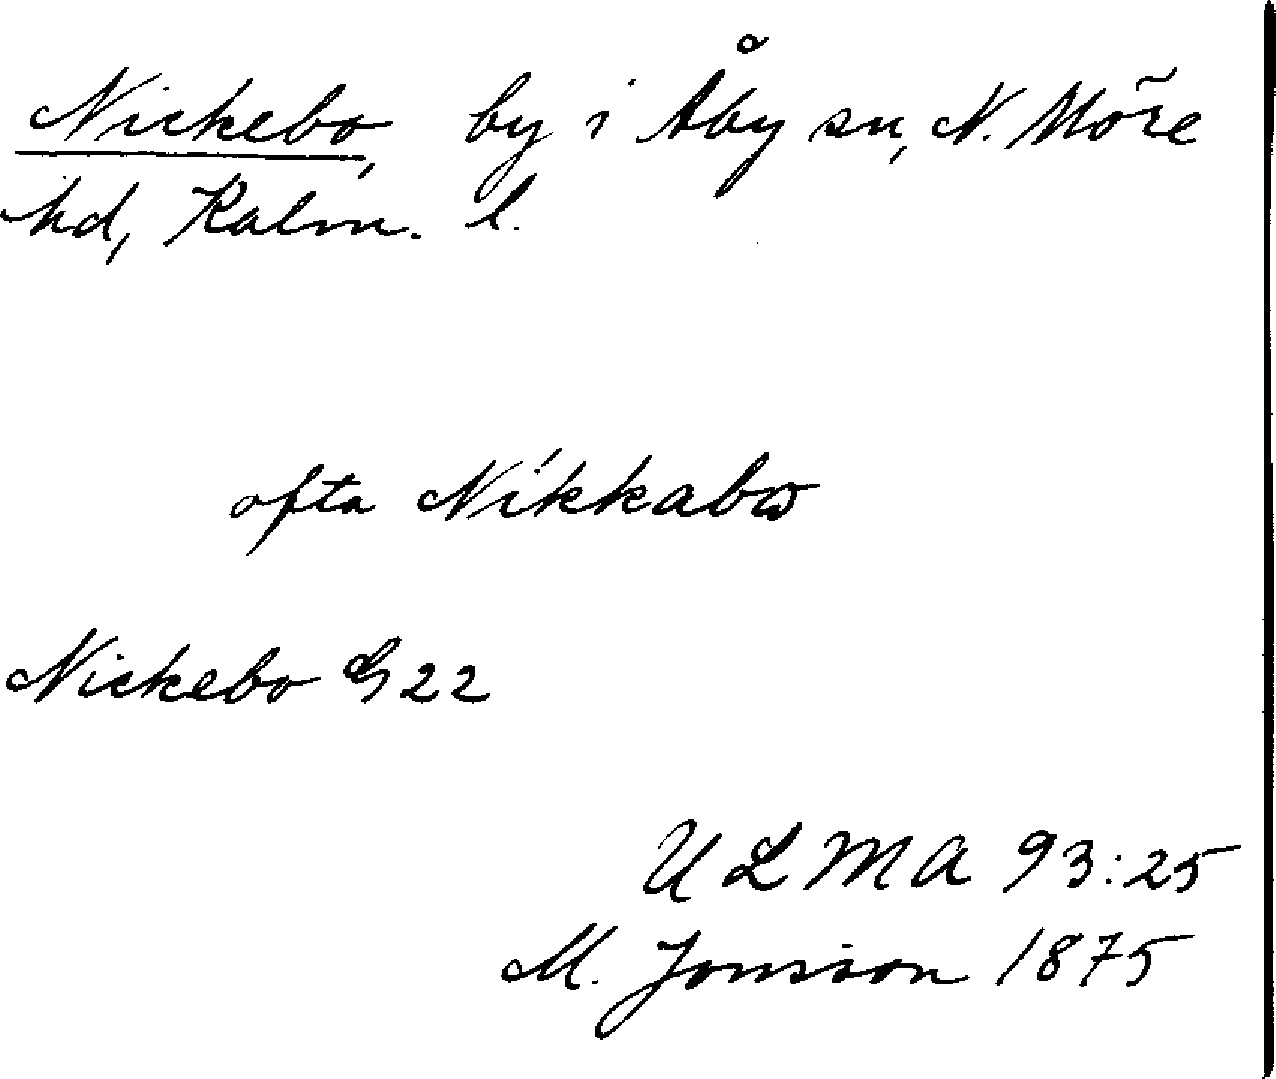 Nickebo, by i Åby sn, N. Möre
hd, Kalm. l.
ofta Níkkabω
Nickebo G 22
ULMA 93:25
M. Jonsson 1875